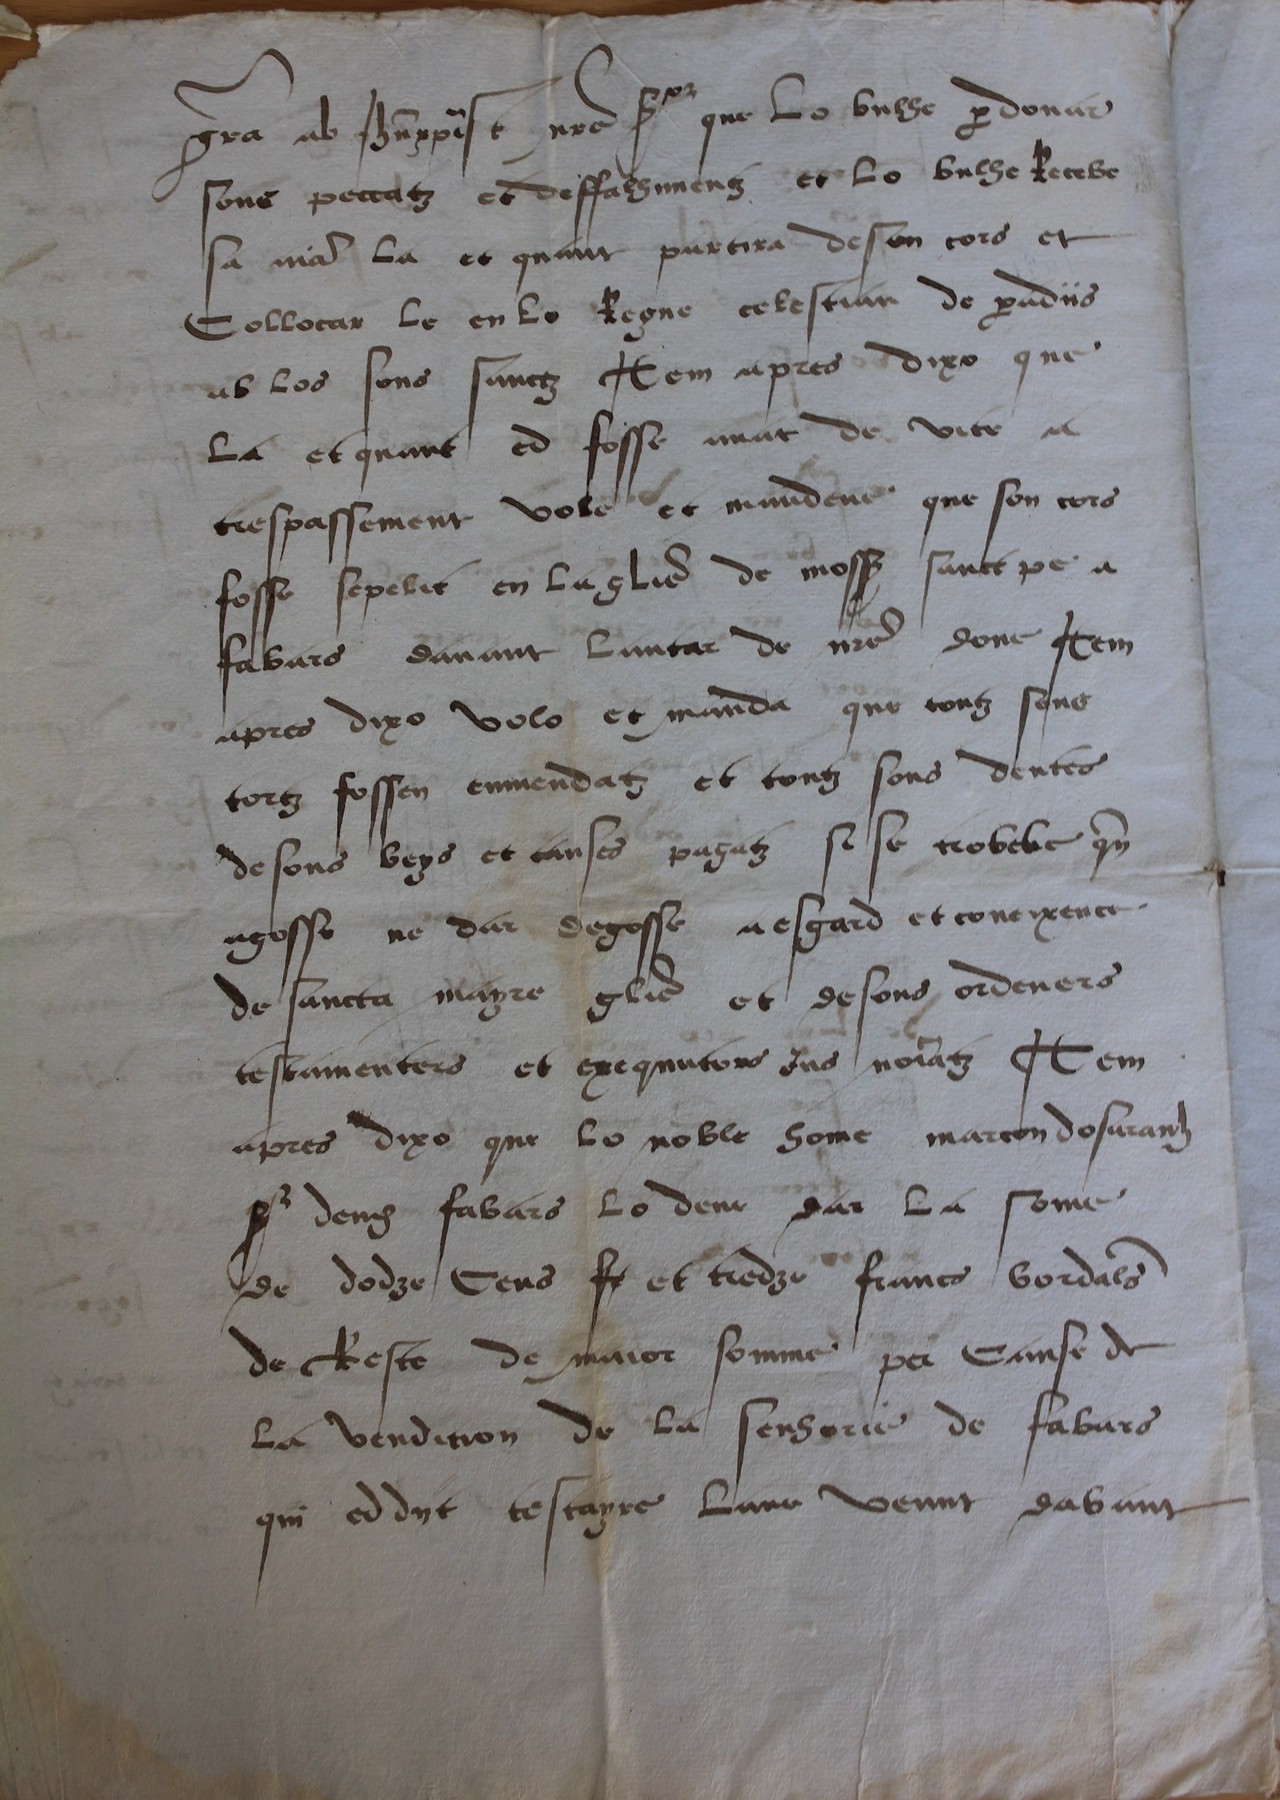 gra ab Jhu xpist nre sor que lo vulhe perdonar
sons peccatz et deffalhimentz et lo vulhe Recebe
sa la et quant partira de son cors et
Collocar le en lo Regne celestiau de paradiis
ab los sons sanctz Item apres dixo que
la et quant ed fosse anat de vite a
trespassement vole et mandeue que son cors
fosse sepelit en la glie de mossr sanct pe a
favars dauant lautar de nre done Item
apres dixo volo et manda que toutz sons
tortz fossen emmendatz et toutz sons deutes
de sons beys et causes pagatz si se trobebe qn
agosse ne dar degosse a esgard et coneixence
de sancta mayre glie et de sons ordeners
testamenters et exequutors jus noiatz Item
apres dixo que lo noble home marcon dosuranh
sr deug favars lo deue dar la some
de dodze Cens et tredze francs bordales
de Reste de maior somme per Cause de
la vendition de la senhorie de favars
qui ed dijt testayre laue venut dabant